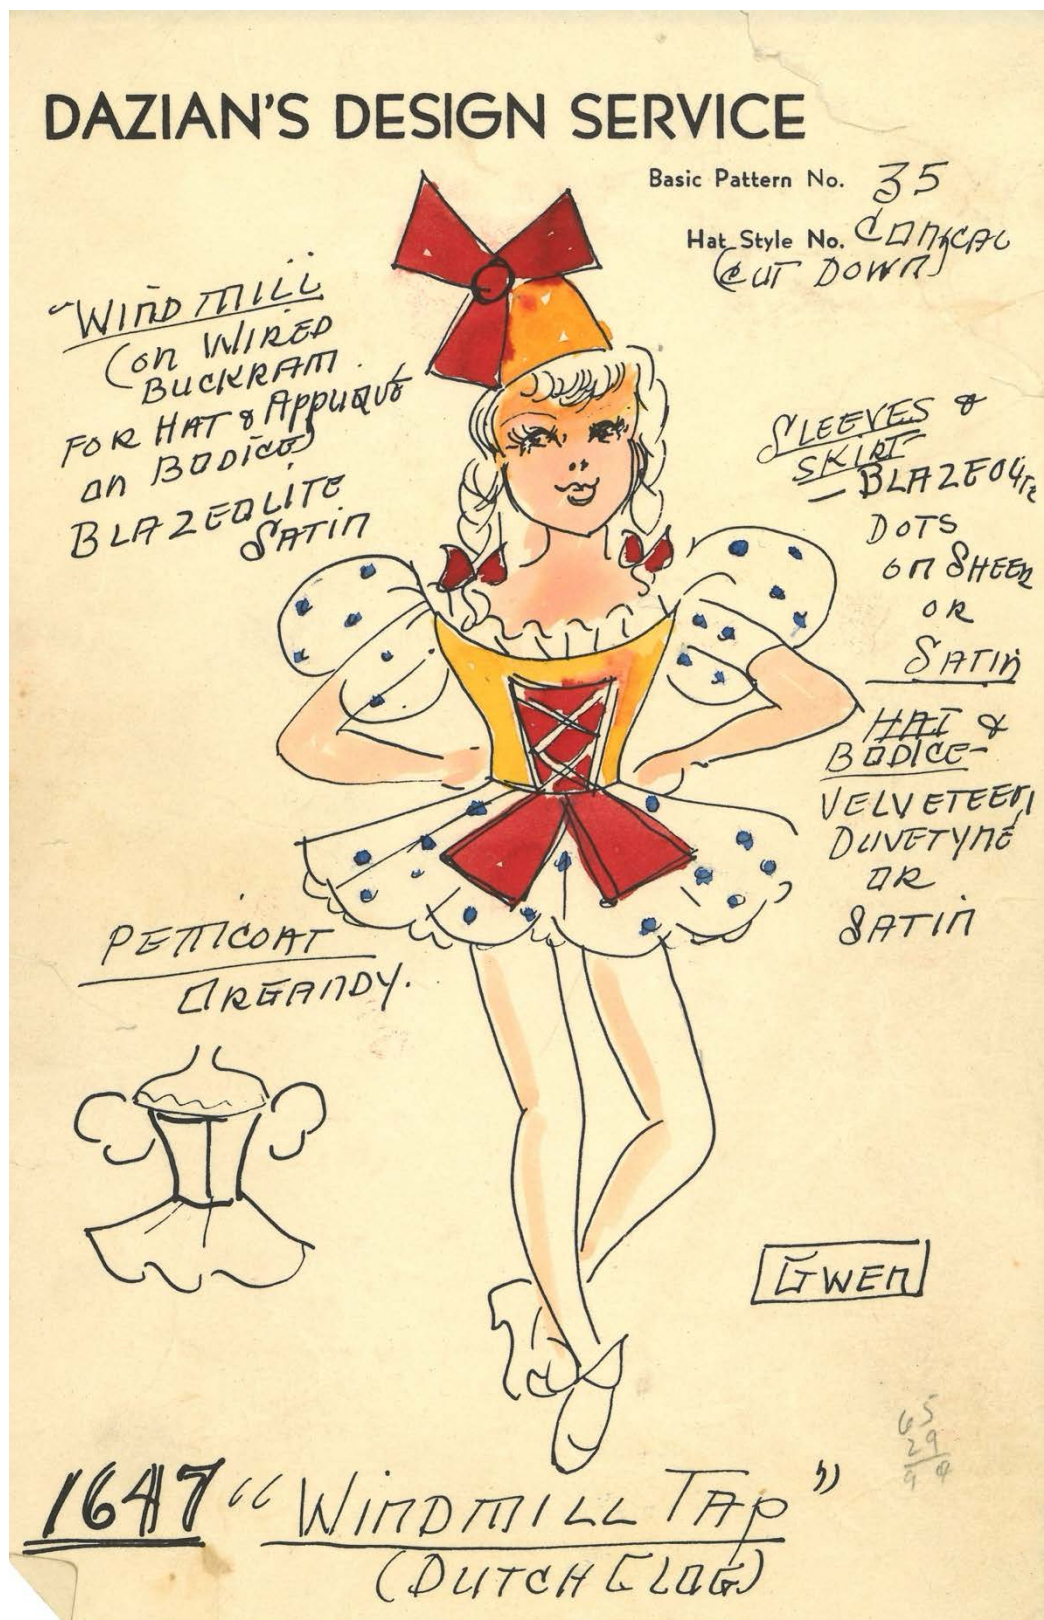 DAZIAN'S DESIGN SERVICE
Basic Pattern No. 35
Hat Style No. CONICAL
(CUT DOWN)
"WINDMILL
(ON WIRED
BUCKRAM
FOR HAT & APPLIQUÉ
ON BODICE)
BLAZEOLITE
SATIN
SLEEVES &
SKIRT
- BLAZEOLITE
DOTS
ON SHEER
OR
SATIN
HAT &
BODICE-
VELVETEEN,
DUVETYNE
OR
SATIN
PETTICOAT
ORGANDY.
GWEN
65
29
1647 "WINDMILL TAP"
(DUTCH CLOG)